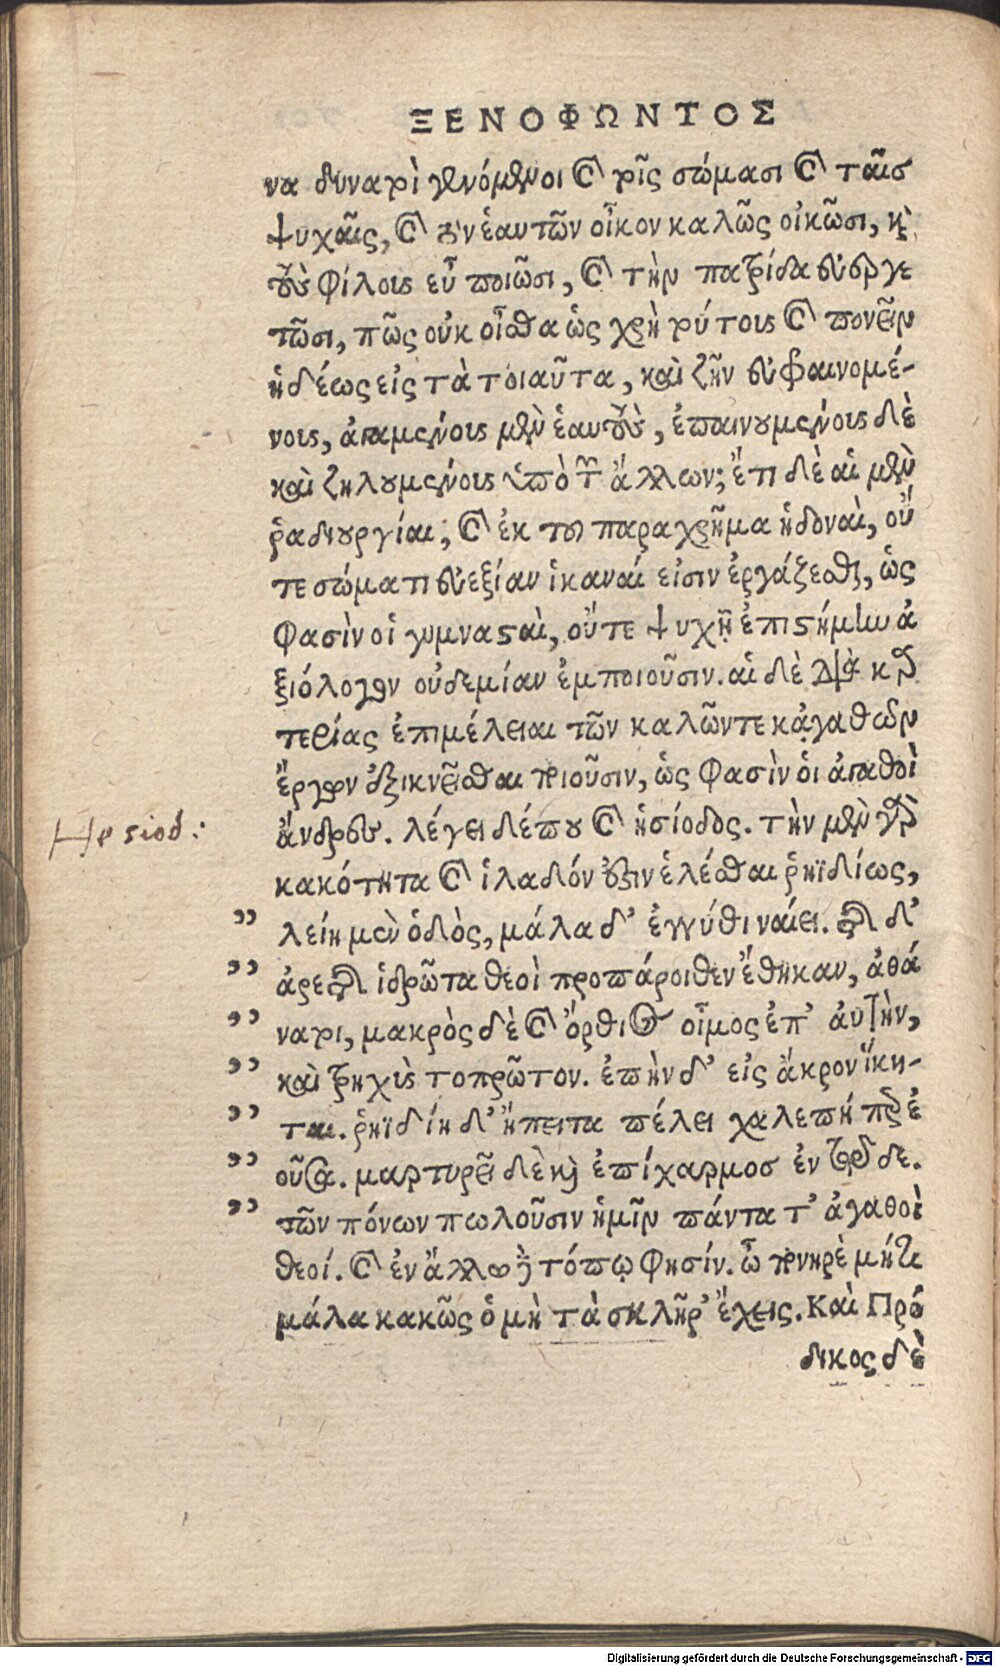 ΞΕΝΟΦΩΝΤΟΣ
να δυνατοὶ γενόμενοι καὶ τοῖς σώμασι καὶ ταῖς
ψυχαῖς, καὶ τὸν ἑαυτῶν οἶκον καλῶς οἰκῶσι, καὶ
τοὺς φίλους εὖ ποιῶσι, καὶ τὴν πατρίδα εὐεργε
τῶσι, πῶς οὐκ οἶσθα ὡς χρὴ τούτους καὶ πονεῖν
ἡδέως εἰς τὰ τοιαῦτα, καὶ ζῆν εὐφραινομέ-
νους, ἀγαμένους μὲν ἑαυτοὺς, ἐπαινουμένους δὲ
καὶ ζηλουμένους ὑπὸ τῶν ἄλλων; ἔτι δὲ αἱ μὲν
ῥαδιουργίαι, καὶ ἐκ τοῦ παραχρῆμα ἡδοναὶ, οὔ
τε σώματι εὐεξίαν ἱκαναί εἰσιν ἐργάζεσθαι, ὥς
φασὶν οἱ γυμνασταὶ, οὔτε ψυχῇ ἐπιστήμην ἀ
ξιόλογον οὐδεμίαν ἐμποιοῦσιν. αἱ δὲ διὰ καρ
τερίας ἐπιμέλειαι τῶν καλῶντε κἀγαθῶν
ἔργων ἐξικνεῖσθαι ποιοῦσιν, ὥς φασὶν οἱ ἀγαθοὶ
ἄνδρες. λέγει δέ που καὶ ἡσίοδος. τὴν μὲν γὰρ
Hesiod:
κακότητα καὶ ἰλαδόν ἐστιν ἑλέσθαι ῥηϊδίως,
” λείη μὲν ὁδὸς, μάλα δ’ ἐγγύθι ναίει. τῆς δ’
” ἀρετῆς ἱδρῶτα θεοὶ προπάροιθεν ἔθηκαν, ἀθά
” νατοι, μακρὸς δὲ καὶ ὄρθιος οἶμος ἐπ’ αὐτὴν,
” καὶ τρηχὺς τοπρῶτον. ἐπὴν δ’ εἰς ἄκρον ἵκη-
” ται. ῥηϊδίη δ’ ἤπειτα πέλει χαλεπή περ ἐ
” οῦσα. μαρτυρεῖ δὲ καὶ ἐπίχαρμος ἐν τῷδε.
” τῶν πόνων πωλοῦσιν ἡμῖν πάντα τ’ ἀγαθοὶ
θεοί. καὶ ἐν ἄλλῳ δὲ τόπῳ φησίν. ὦ πονηρὲ μήτε
μάλα κακῶς ὁ μὴ τὰ σκλῆρ’ ἔχεις. Καὶ Πρό
δικος δὲ
Digitalisierung gefördert durch die Deutsche Forschungsgemeinschaft - DFG